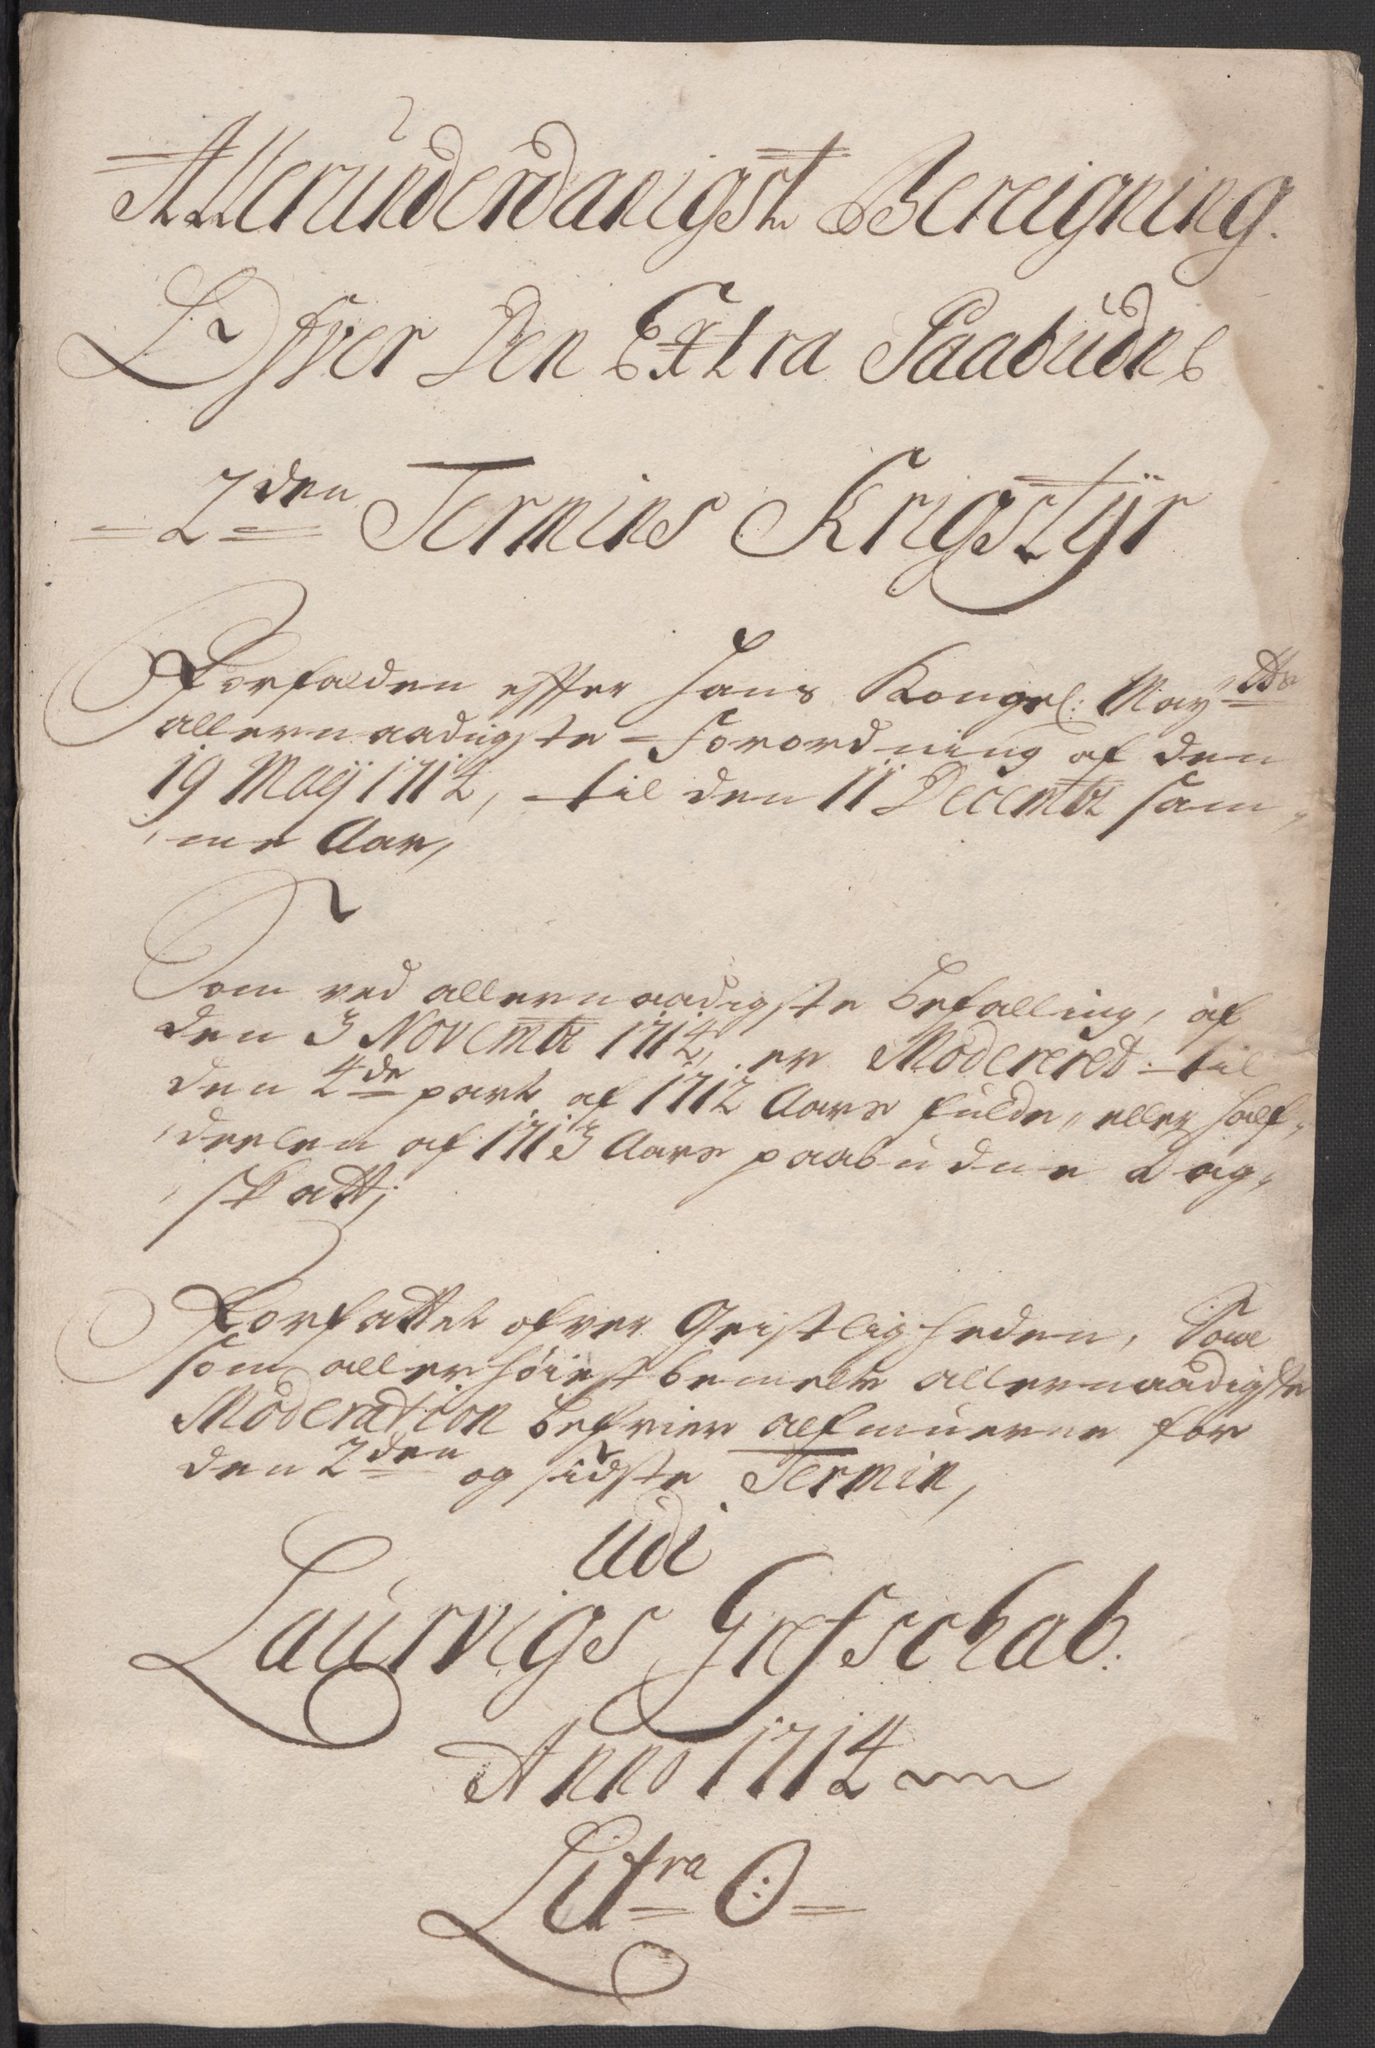 Allerunderdanigst Bereigning.
Ofver Den Extra Paabudne
2den Termins Krigstÿr
Forfalden effter Hans Kongel: Mayttz
allernaadigste Forordning af den
19 Maÿ 1714, til den 11 Decembr sam,
me Aar,
Som ved allernaadigste befalling, af
den 3 Novembr 1714, er Modereret til
den 4de part af 1712 Aars fulde, eller half,
deelen af 1713 Aars paabudne Dag,
skatt;
Forfattet ofver Geistligheden, Saa
som allerhöiestbemelte allernaadigste
Moderation befrier almuerne for
den 2den og sidste Termin,
udi
Laurvigs Grefschab.
Anno 1714
Litra O: